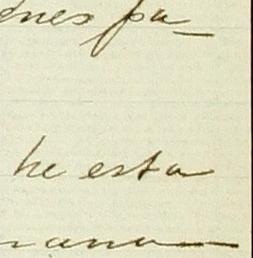 ones pa_
he esta
nana—